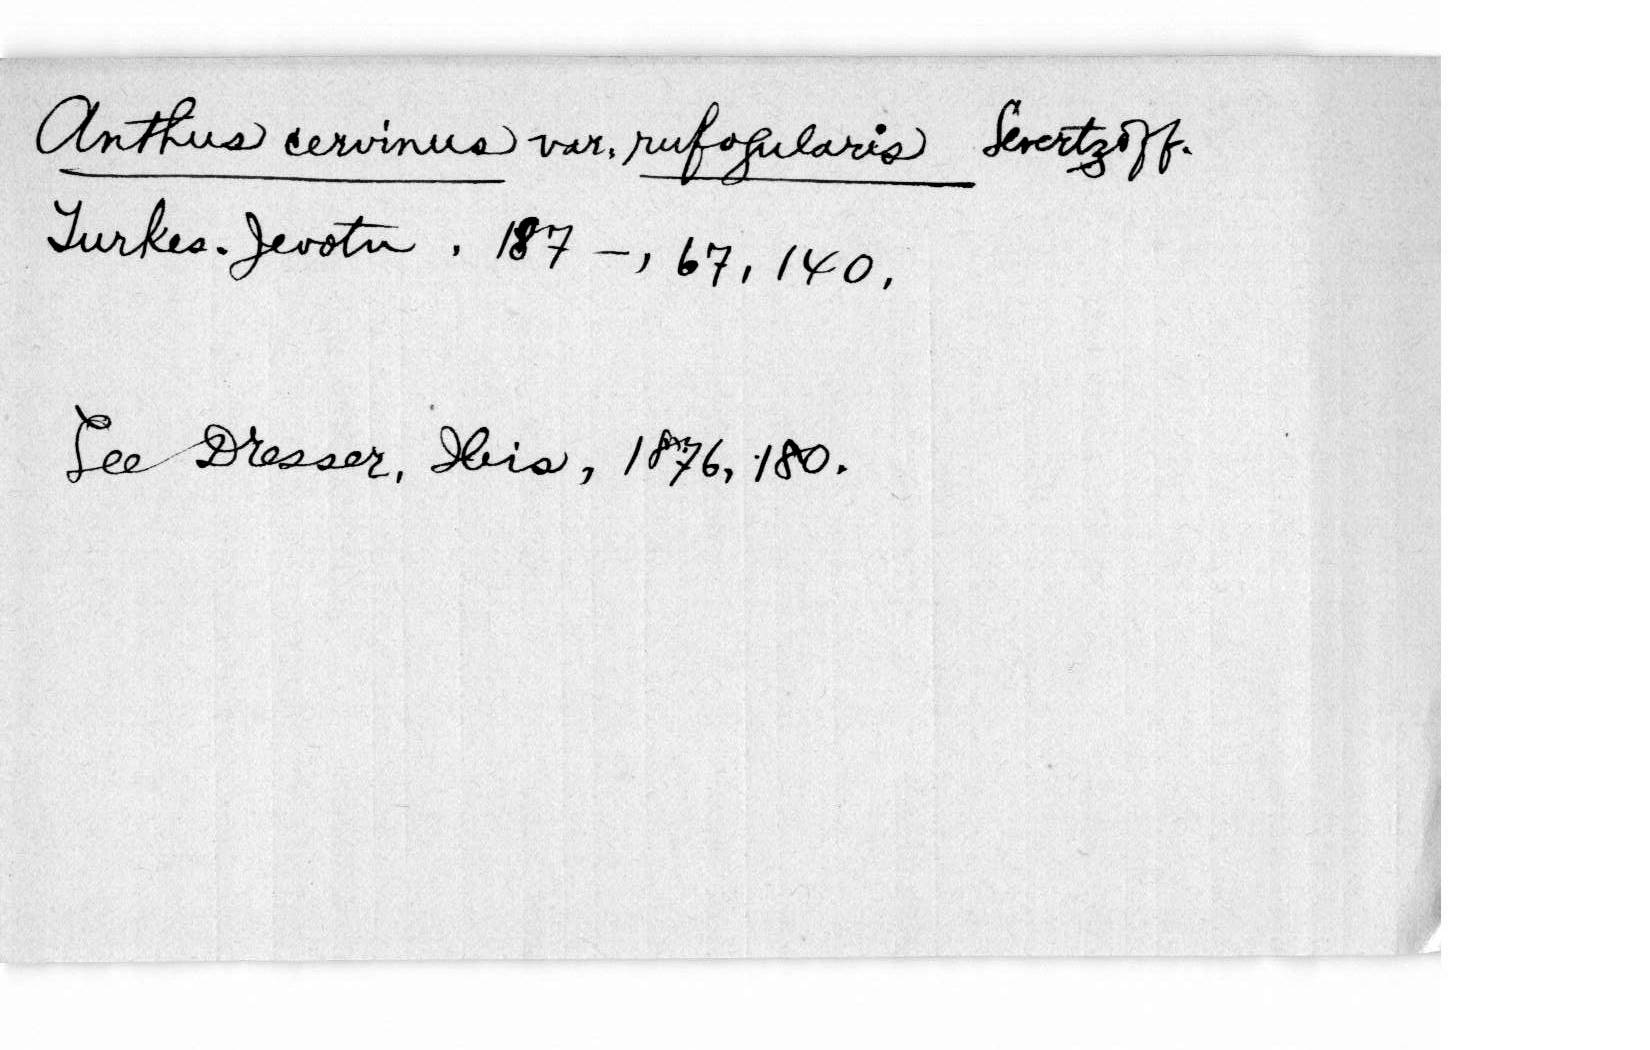 Anthus cervinus var. rufogularis Severtzoff.
Turkes. Jevotn. 187 -, 67, 140.
See Dresser, Ibis, 1876, 180.